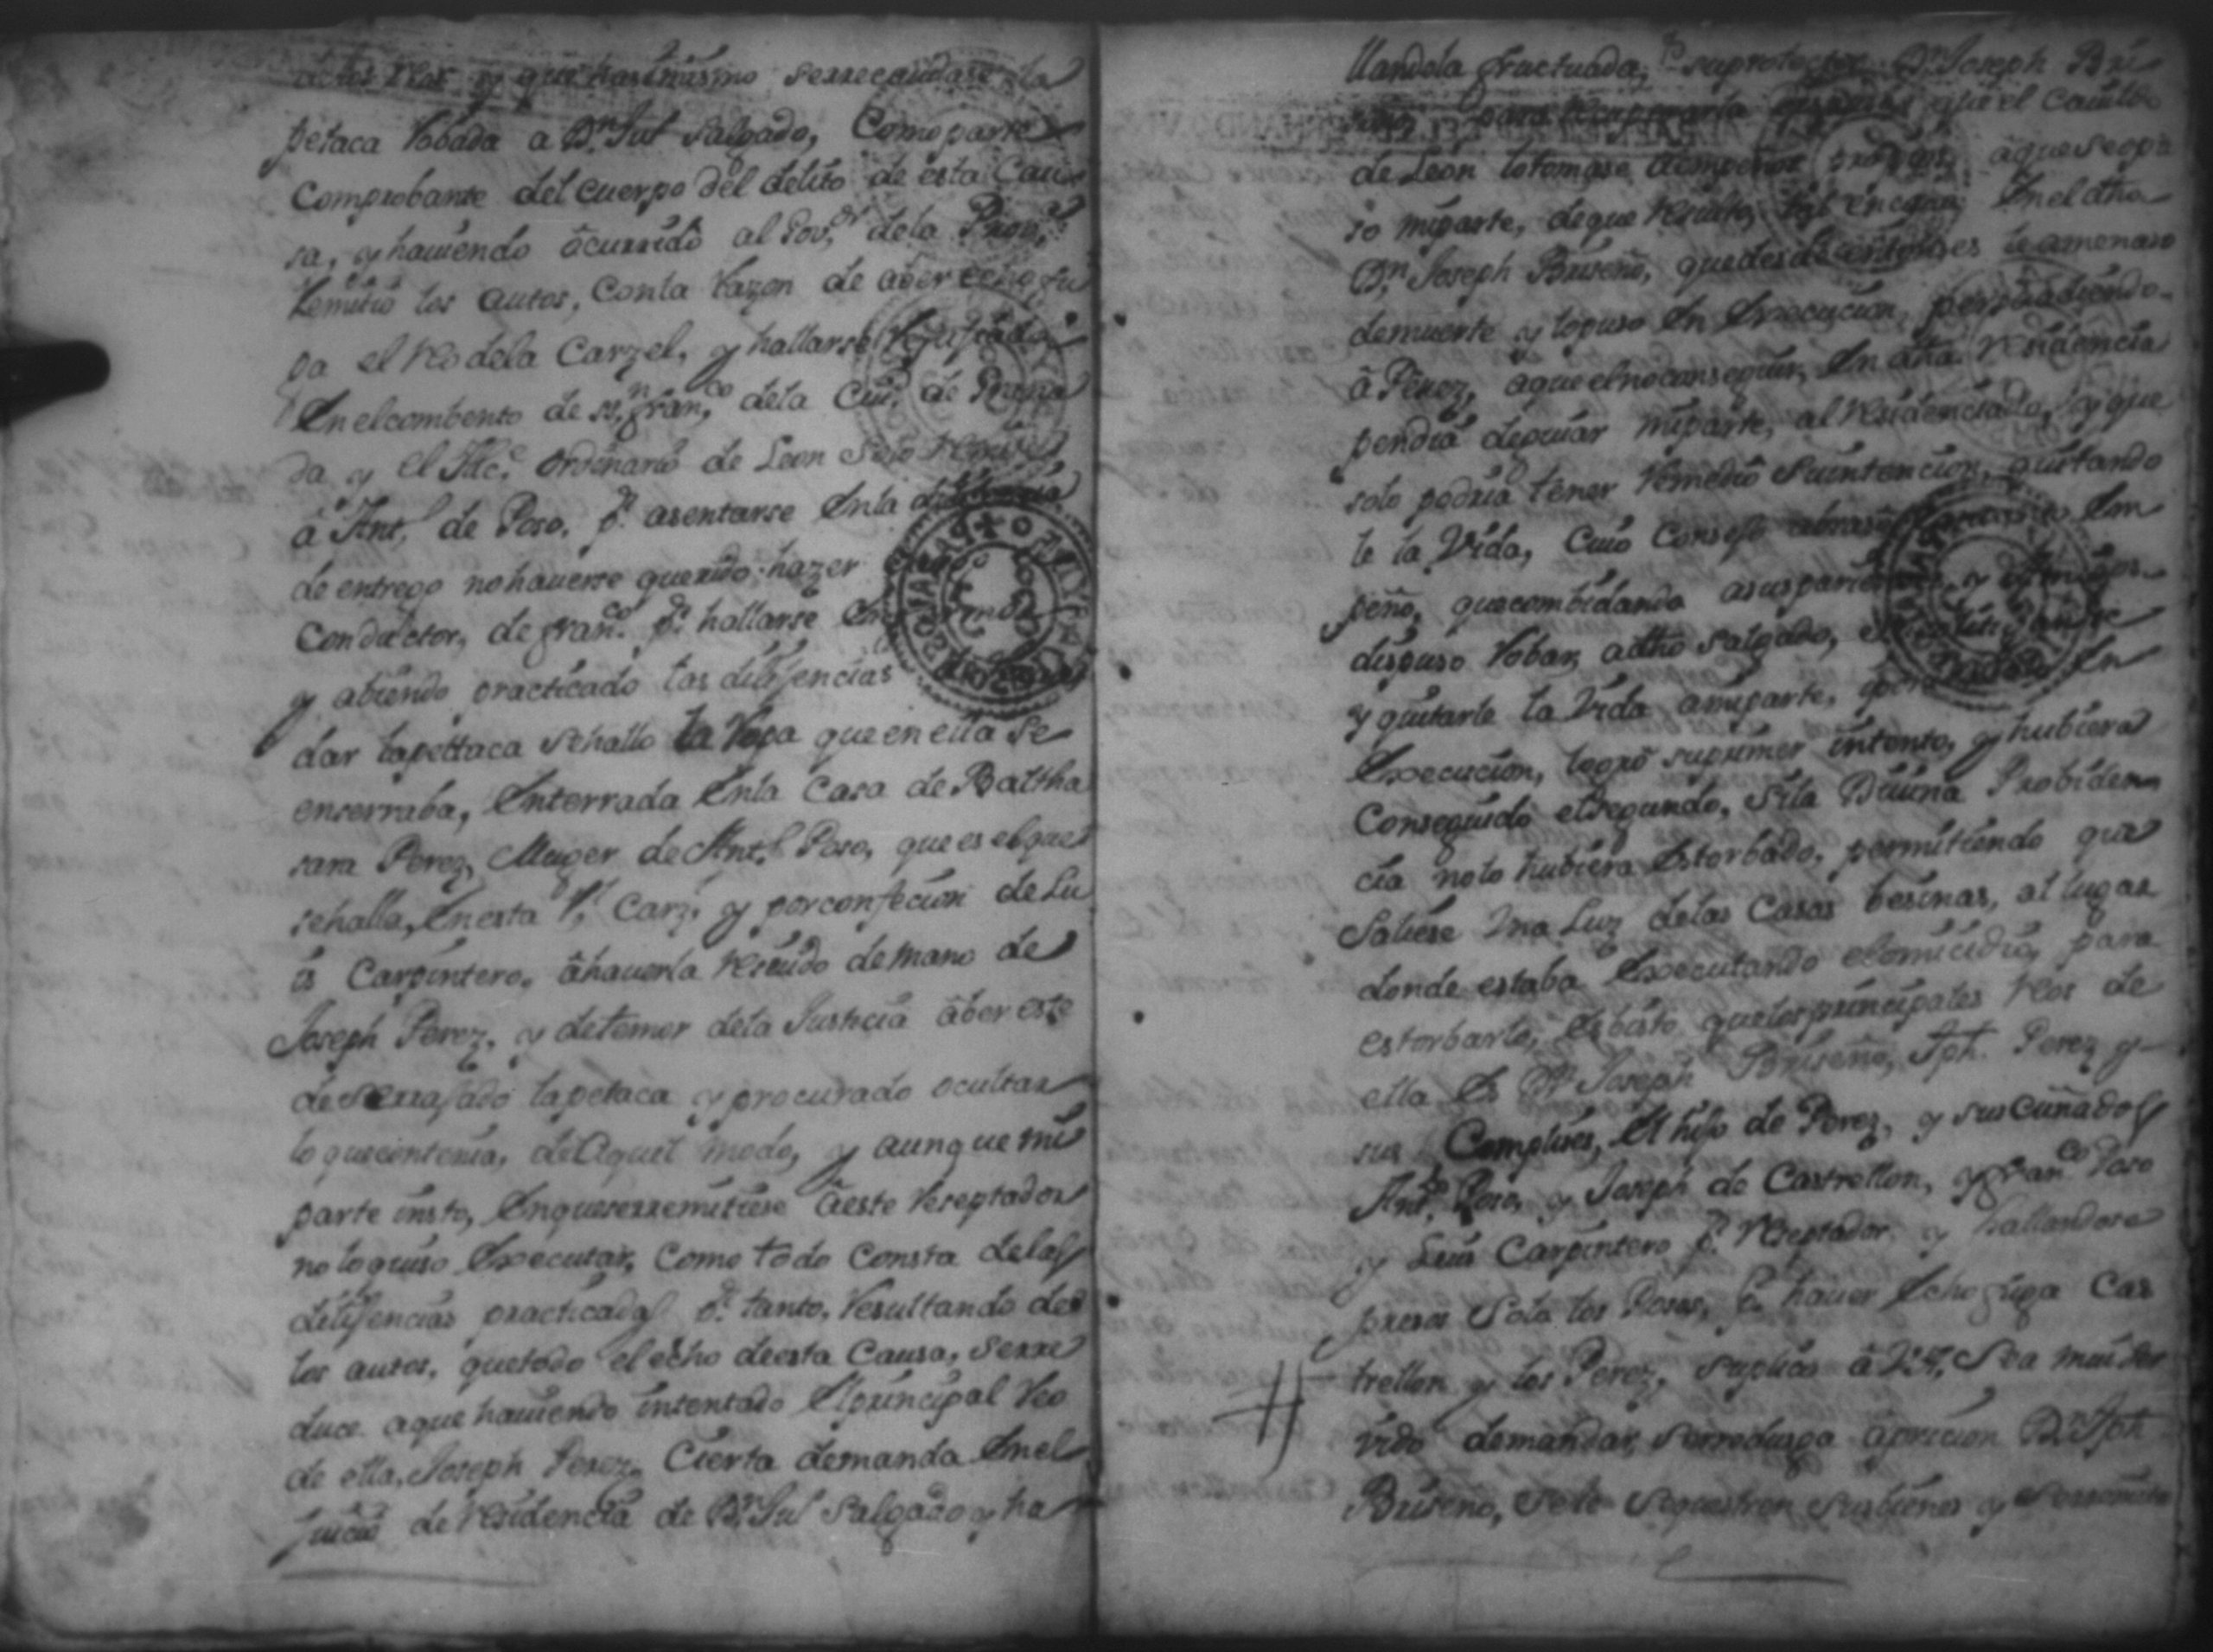 y que hasimismo serrecaudase la
petaca Robada a Dn. Jul Salgado, Como parte
Comprobante del cuerpo del delito de esta Cau
sa, y hauiendo ôcurrido al Gov.or dela Prov.a
Remitio los autos, Conla Razon de aber echo fu
ga el Reo dela Carzel, y hallarse Refujiado
En elcombento de sn. Fran.co dela Ciud. de
da y El Alc.e ordinario de Leon Solo Remitio
â Ant.o de Poso, p.r asentarse Enla dilijencia
de entrego nohauerse querido hazer cargo
Conductor, de Fran.co p.r hallarse Enfermo
y abiendo practicado las dilijencias
dar lapettaca sehallo la Ropa que en ella Se
enserraba, Enterrada Enla Casa de Baltha
sara Perez, Muger de Ant.o Poso, que es elque
sehalla, Enesta R.l Carz.l y porconfecion de Lu
is Carpintero, âhauerla Resiuido demano de
Joseph Perez, y detemor dela Justicia âber este
deserrajado lapetaca y procurado ocultar
loquecontenia, deAquel modo, y aunque mi
parte insto, Enqueserremitiese âeste Reseptador
nologuiso Executar, Como todo Consta delas
dilijencias practicadas p.r tanto, Resultando de
los autos, quetodo el echo deesta Causa, serre
duce aque hauiendo intentado Elprincipal Reo
de ella, Joseph Perez, Cierta demanda Enel
Juicio de Residencia de Dn. Jul Salgado y ha
llandola fractuada, p.r suprotector Dn. Joseph Bri
seño para que el Cauildo
de Leon lotomase âempeños aqueseopu
so miparte, deque Resulto, tal Eneono Eneldho
Dn. Joseph Briseño, quedesde entonses leamenaso
demuerte y lopuso En Execucion, persuadiendo
â Perez, aqueelnoconseguir, En dha Residencia
pendia dequiar miparte, al Residenciado, y que
solo podria tener Remedio Suintencion, quitando
le la Vida, Cuio Consejo Em
peño, quecombidando asusparientes y Amigos
dispuso Robar, adho Salgado,
y quitarle la Vida amiparte, En
Execucion, logro suprimer intento, y hubiera
Conseguido elsegundo, Sila Diuina Probiden
cia nolo hubiera Estorbado, permitiendo que
Saliese Una Luz delas Casas besinas, al lugar
donde estaba Executando elomicidio, para
estorbarlo, Esbisto quelosprincipales Reos de
ella Es Dn. Joseph Briseño, Jph. Perez y
sus Complices, El hijo de Perez, y sus Cuñados
Ant.o Poso, y Joseph de Castrellon, y Fran.co Poso
y Luis Carpintero p.r Reseptador y hallandose
presos Solo los Posos, p.r hauer Echo fuga Cas
trellon y los Perez, Suplico â V.A. Sea mui ser
vido demandar, serreduzga âpricion Dn. Jph
Briseño, sele sequestren susbienes y serremita